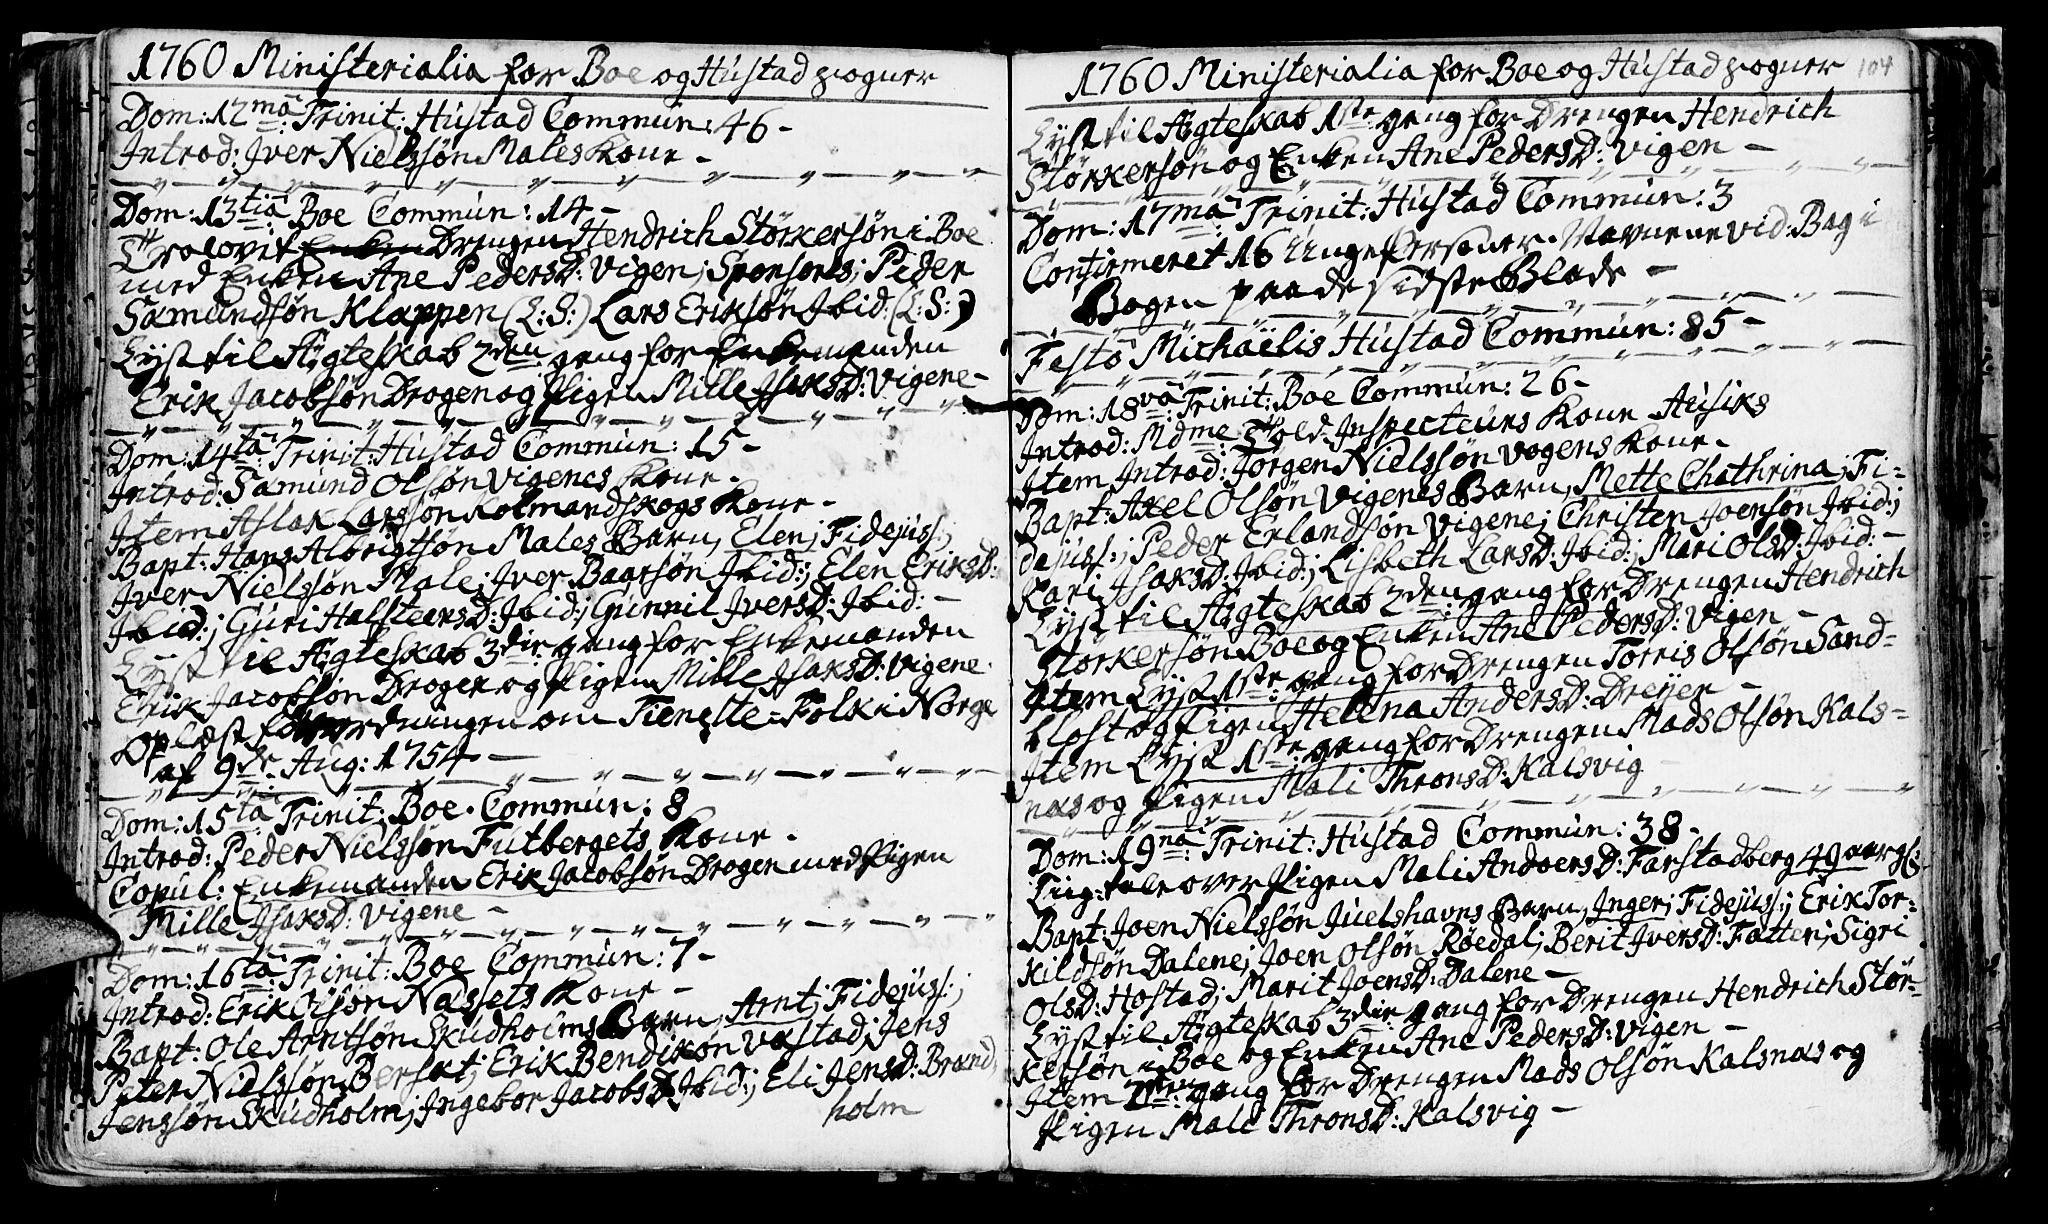 1760 Ministerialia for Boe og Hustad sogner
Dom: 12ma: Trinit: Hustad Commun: 46 -
Introd: Iver Nielssøn Males Kone -
Dom: 13tia Boe Commun: 14 -
Trolovet Enken Drengen Hendrich Størkersøn i Boe
med Enken Ane PedersD: Vigen; Sponsores; Peder
Samundsøn Klappen (L:S:) Lars Eriksøn Ibid: (L:S:)
Lyst til Ægteskab 2den gang for Enkemanden
Erik Jacobsøn Drogen og Pigen Mille IsaksD: Vigene -
Dom: 14ta: Trinit: Hustad Commun: 15 -
Introd: Samund Olsøn Vigenes Kone -
Item Aslak Larssøn Kolmandskogs Kone -
Bapt: Hans Albrigtsøn Males Barn, Elen; Fidejuss:;
Iver Nielssøn Male; Iver Baarsøn Ibid:; Elen EriksD:
Ibid:; Guri HalsteensD: Ibid:; Gunnil IversD: Ibid: -
Lyst til Ægteskab 3die gang for Enkemanden
Erik Jacobsøn Drogen og Pigen Mille IsaksD: Vigene -
Oplæst Forordningen om Tieneste-Folk i Norge
af 9de Aug: 1754 -
Dom: 15ta Trinit: Boe Commun: 8
Introd: Peder Nielssøn Futbergets Kone -
Copul: Enkemanden Erik Jacobsøn Drogen med Pigen
Mille IsaksD: Vigene -
Dom: 16ta: Trinit: Boe Commun: 7 -
Introd: Erik Olsøn Nassets Kone -
Bapt: Ole Arntsøn Skudholms Barn, Arnt; Fidejuss:;
Peter Nielssøn Bersæt; Erik Bendixøn Vastad; Jens
Jenssøn Skudholm; Ingebor JacobsD: Ibid:; Eli JensD: Brand
holm
1760 Ministerialia for Boe og Hustad sogner 104
Lyst til Ægteskab 1ste gang for Drengen Hendrich
Størkersøn og Enken Ane PedersD: Vigen -
Dom: 17ma: Trinit: Hustad Commun: 3
Confirmeret 16 Unge Personer. Navnene vid: Bag i
Bogen paa de sidste Blade -
Festo Michaëlis Hustad Commun: 85 -
Dom: 18va: Trinit: Boe Commun: 26 -
Introd: Mdme Told-Inspecteurs Kone Husiks
Item Introd: Jørgen Nielssøn Vogens Kone -
Bapt: Axel Olsøn Vigenes Barn, Mette Chathrina; Fi-
dejuss:; Peder Erlandsøn Vigene; Christen Joensøn Ibid:;
Kari IsaksD: Ibid:; Lisbeth LarsD: Ibid:; Mari OlsD: Ibid: -
Lyst til Ægteskab 2den gang for Drengen Hendrich
Størkersøn Boe og Enken Ane PedersD: Vigen -
Item Lyst 1ste gang for Drengen Torris Olsøn Sand-
blost og Pigen Helena AndersD: Dreyer -
Item Lyst 1ste gang for Drengen Mads Olsøn Kals-
næs og Pigen Mali ThronsD: Kalsvig
Dom: 19na: Trinit: Hustad Commun: 38 -
Liig-tale over Pigen Mali AndoersD: Farstadberg 49 aar gl:
Bapt: Joen Nielssøn Juelshavns Barn, Inger; Fidejuss:; Erik Tor-
kildsøn Dalene; Joen Olsøn Røedal; Berit IversD: Fatten; Sigri
OlsD: Hostad; Marit JoensD: Dalene -
Lyst til Ægteskab 3die gang for Drengen Hendrich Stør-
kersøn i Boe og Enken Ane PedersD: Vigen -
Item 2den gang for Drengen Mads Olsøn Kalsnæs og
Pigen Mali ThronsD: Kalsvig -